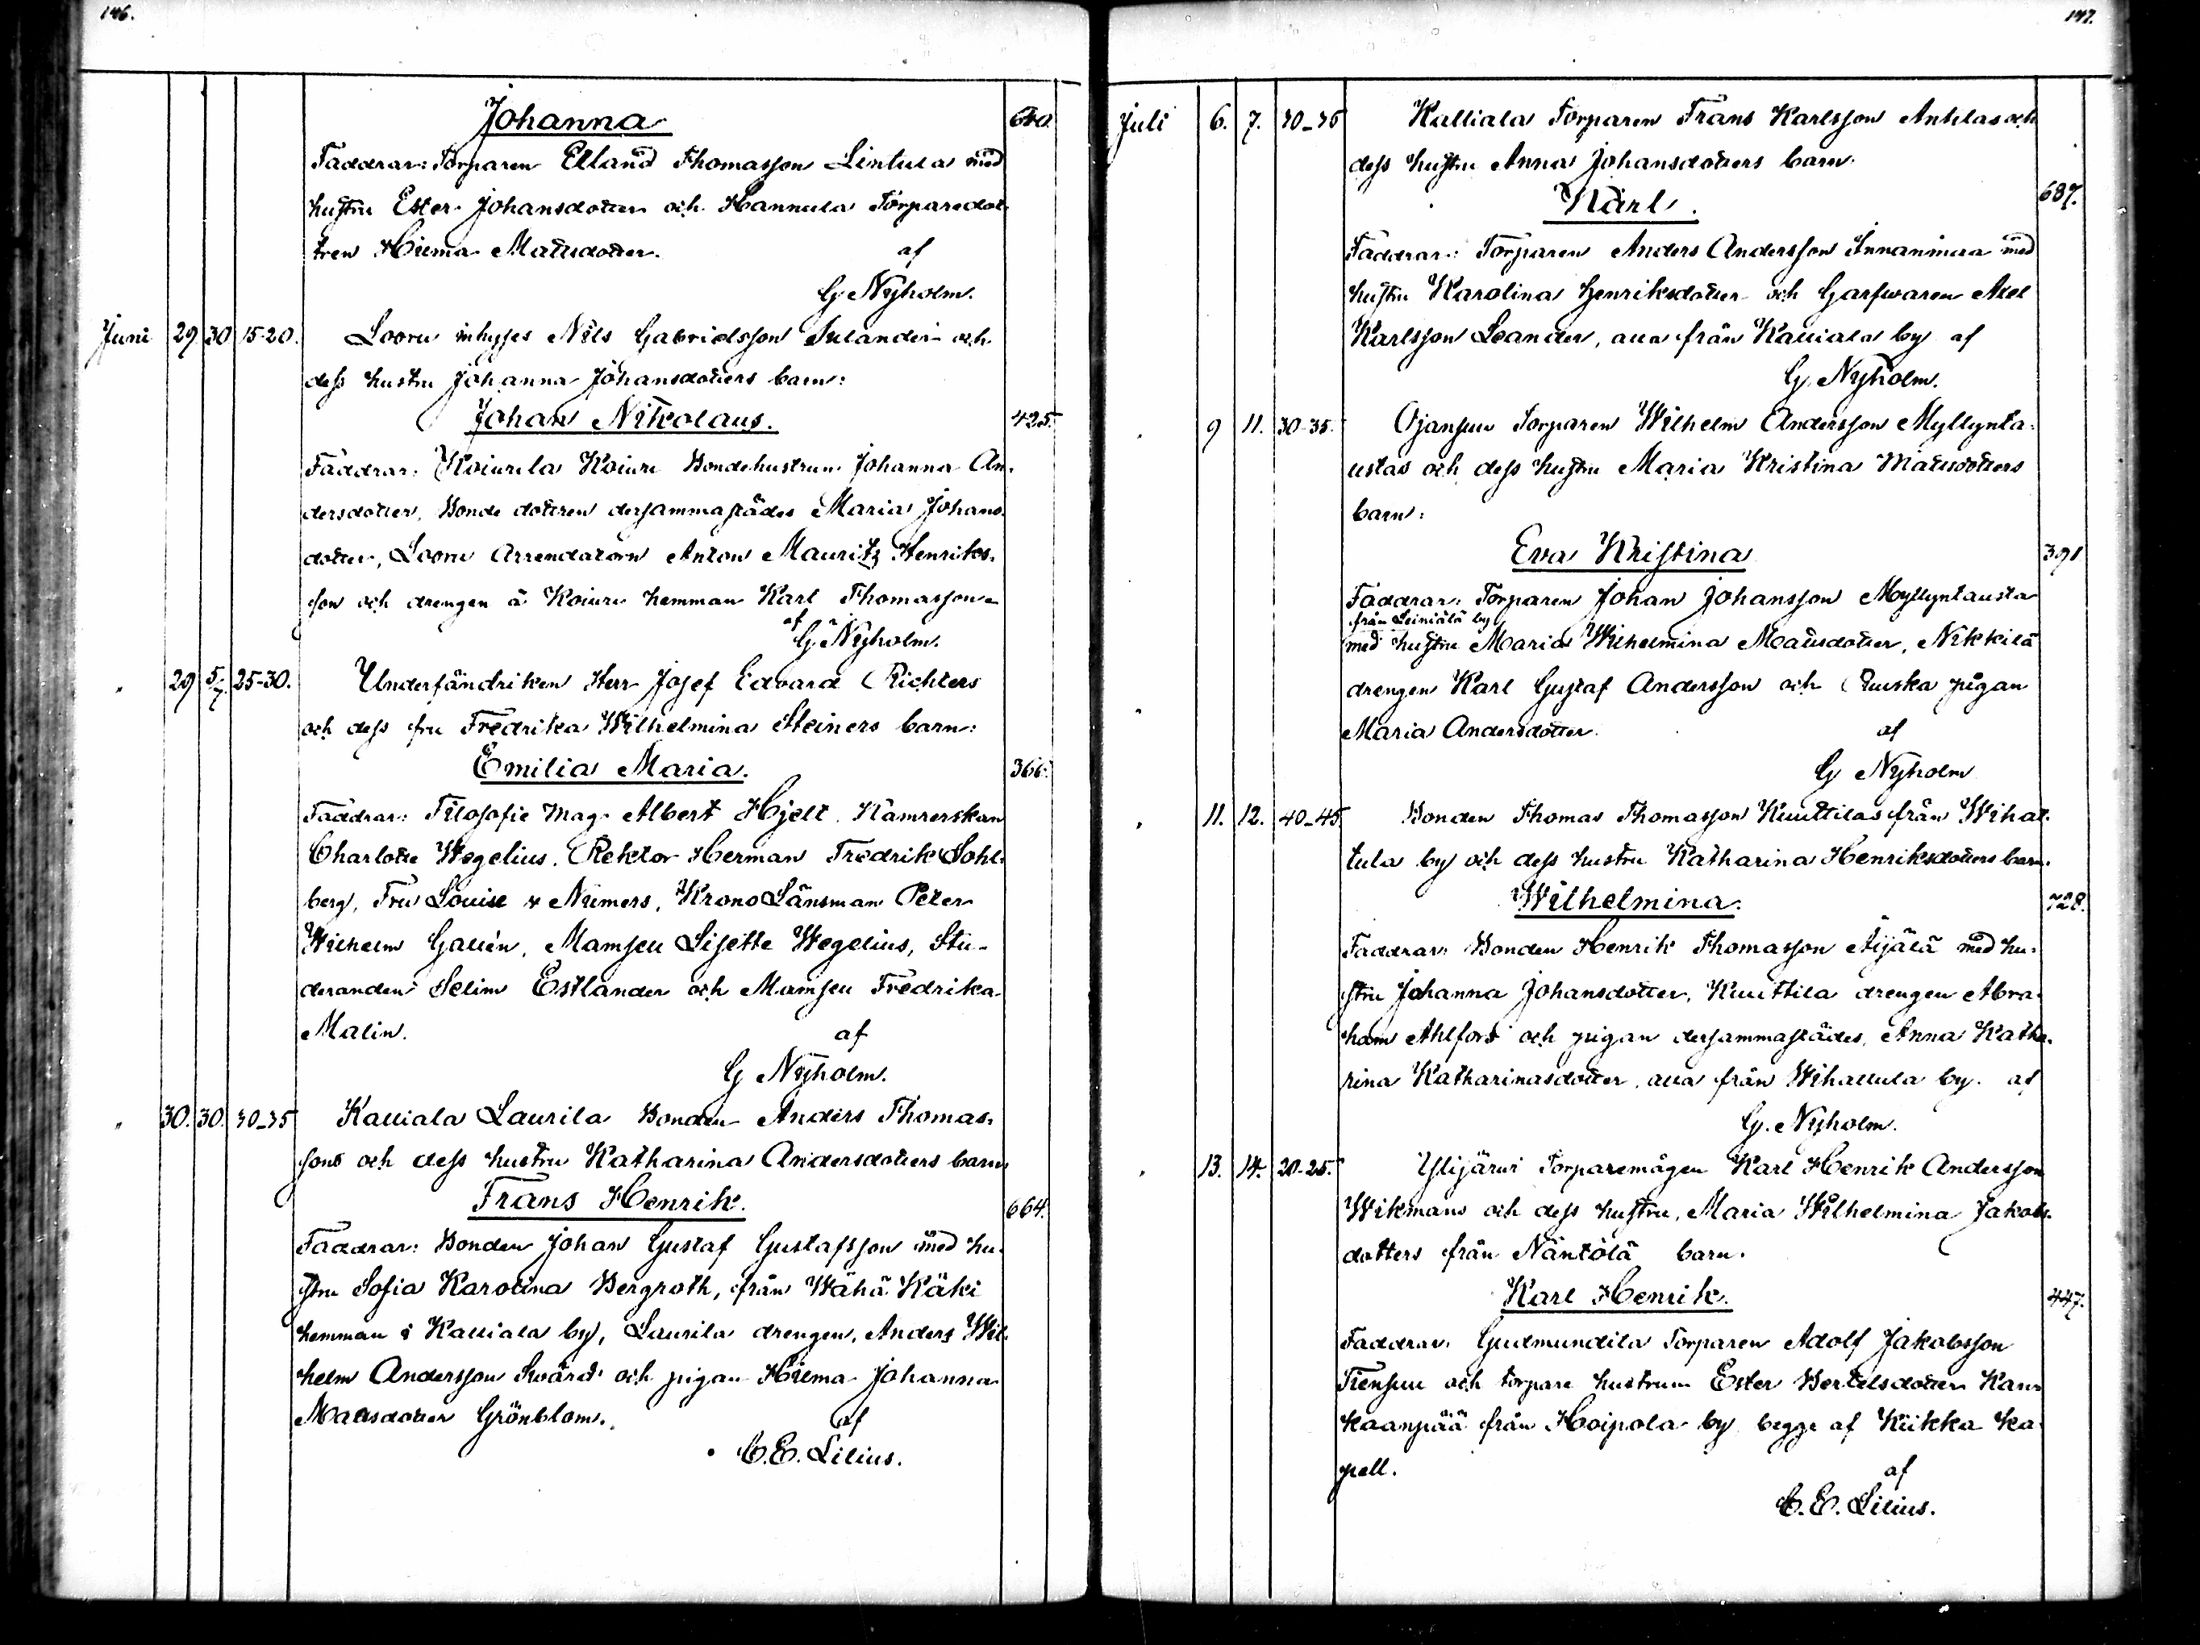 146.
Johanna 640.
Faddrar: Torparen Elland Thomasson Lintula med
hustru Ester Johansdotter och Hannula Torparedot
tren Hilma Mattsdotter. af
G. Nyholm.
Juni 29 30 15-20. Looru inhyses Nils Gabrielsson Sulander och
dess hustru Johanna Johansdotters barn:
Johan Nikolaus. 425.
Faddrar: Koiurila Koiuri Bondehustrun Johanna An-
dersdotter, Bonde dottren dersammastädes Maria Johans-
dotter, Looru Arrendatorn Anton Mauritz Henriks-
son och drengen å Koiuri hemman Karl Thomasson
af G. Nyholm.
" 29 5/7. 25-30. Underfändriken Herr Josef Edvard Richters
och dess fru Fredrika Wilhelmina Steiners barn:
Emilia Maria. 366.
Faddrar: Filosofie Mag. Albert Hjelt, Kamrerskan
Charlotte Wegelius, Rektor Herman Fredrik Sohl-
berg, Fru Louise v Numers, Krono Länsman Peter
Wilhelm Gallén, Mamsell Lisette Wegelius, Stu-
deranden Selim Estlander och Mamsell Fredrika
Malin. af
G Nyholm.
" 30. 30. 30-35 Kalliala Laurila Bonden Anders Thomas-
sons och dess hustru Katharina Andersdotters barn
Frans Henrik. 664.
Faddrar: Bonden Johan Gustaf Gustafsson med hu-
stru Sofia Karolina Bergroth, från Wähä Käki
hemman i Kalliala by, Laurila drengen, Anders Wil-
helm Andersson Svärd och pigan Hilma Johanna
Mattsdotter Grönblom. af
C. E. Lilius.
147.
Juli 6. 7. 30-35 Kalliala Torparen Frans Karlsson Anttilas och
dess hustru Anna Johansdotters barn.
Karl. 687.
Faddrar: Torparen Anders Andersson Innanmaa med
hustru Karolina Henriksdotter och Garfwaren Axel
Karlsson Leander, alla från Kalliala by af
G. Nyholm.
" 9 11. 30-35. Ojansuu Torparen Wilhelm Andersson Myllynta-
ustas och dess hustru Maria Kristina Mattsdotters
barn:
Eva Kristina 391
Faddrar: Torparen Johan Johansson Myllyntausta
från Leiniälä by
med hustru Maria Wilhelmina Mattsdotter, Nikkilä
drengen Karl Gustaf Andersson och Ruuska pigan
Maria Andersdotter. af
G Nyholm
" 11. 12. 40-45. Bonden Thomas Thomasson Knuttilas från Wihat-
tula by och dess hustru Katharina Henriksdotters barn.
Wilhelmina. 728.
Faddrar: Bonden Henrik Thomasson Äijälä med hu-
stru Johanna Johansdotter, Knuttila drengen Abra-
ham Ahlfors och pigan dersammastädes, Anna Katha-
rina Katharinasdotter, alla från Wihattula by. af
G. Nyholm.
" 13. 14. 20-25. Ylijärwi Torparemågen Karl Henrik Andersson
Wikmans och dess hustru, Maria Wilhelmina Jakobs-
dotters från Näntölä barn.
Karl Henrik. 447.
Faddrar: Gudmundila Torparen Adolf Jakobsson
Tiensuu och torpare hustrun Ester Bertelsdotter Kan-
kaanpää från Hoipola by begge af Kiikka ka-
pell. af
C. E. Lilius.